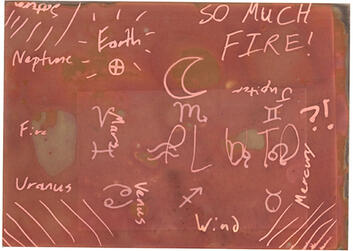 Saturn
SO MUCH
FIRE!
Earth
Neptune
Jupiter
♏
♊
Fire
Mars
♓
♌
♑
♉
??
Mercury
Uranus
Venus
♋
♐
Wind